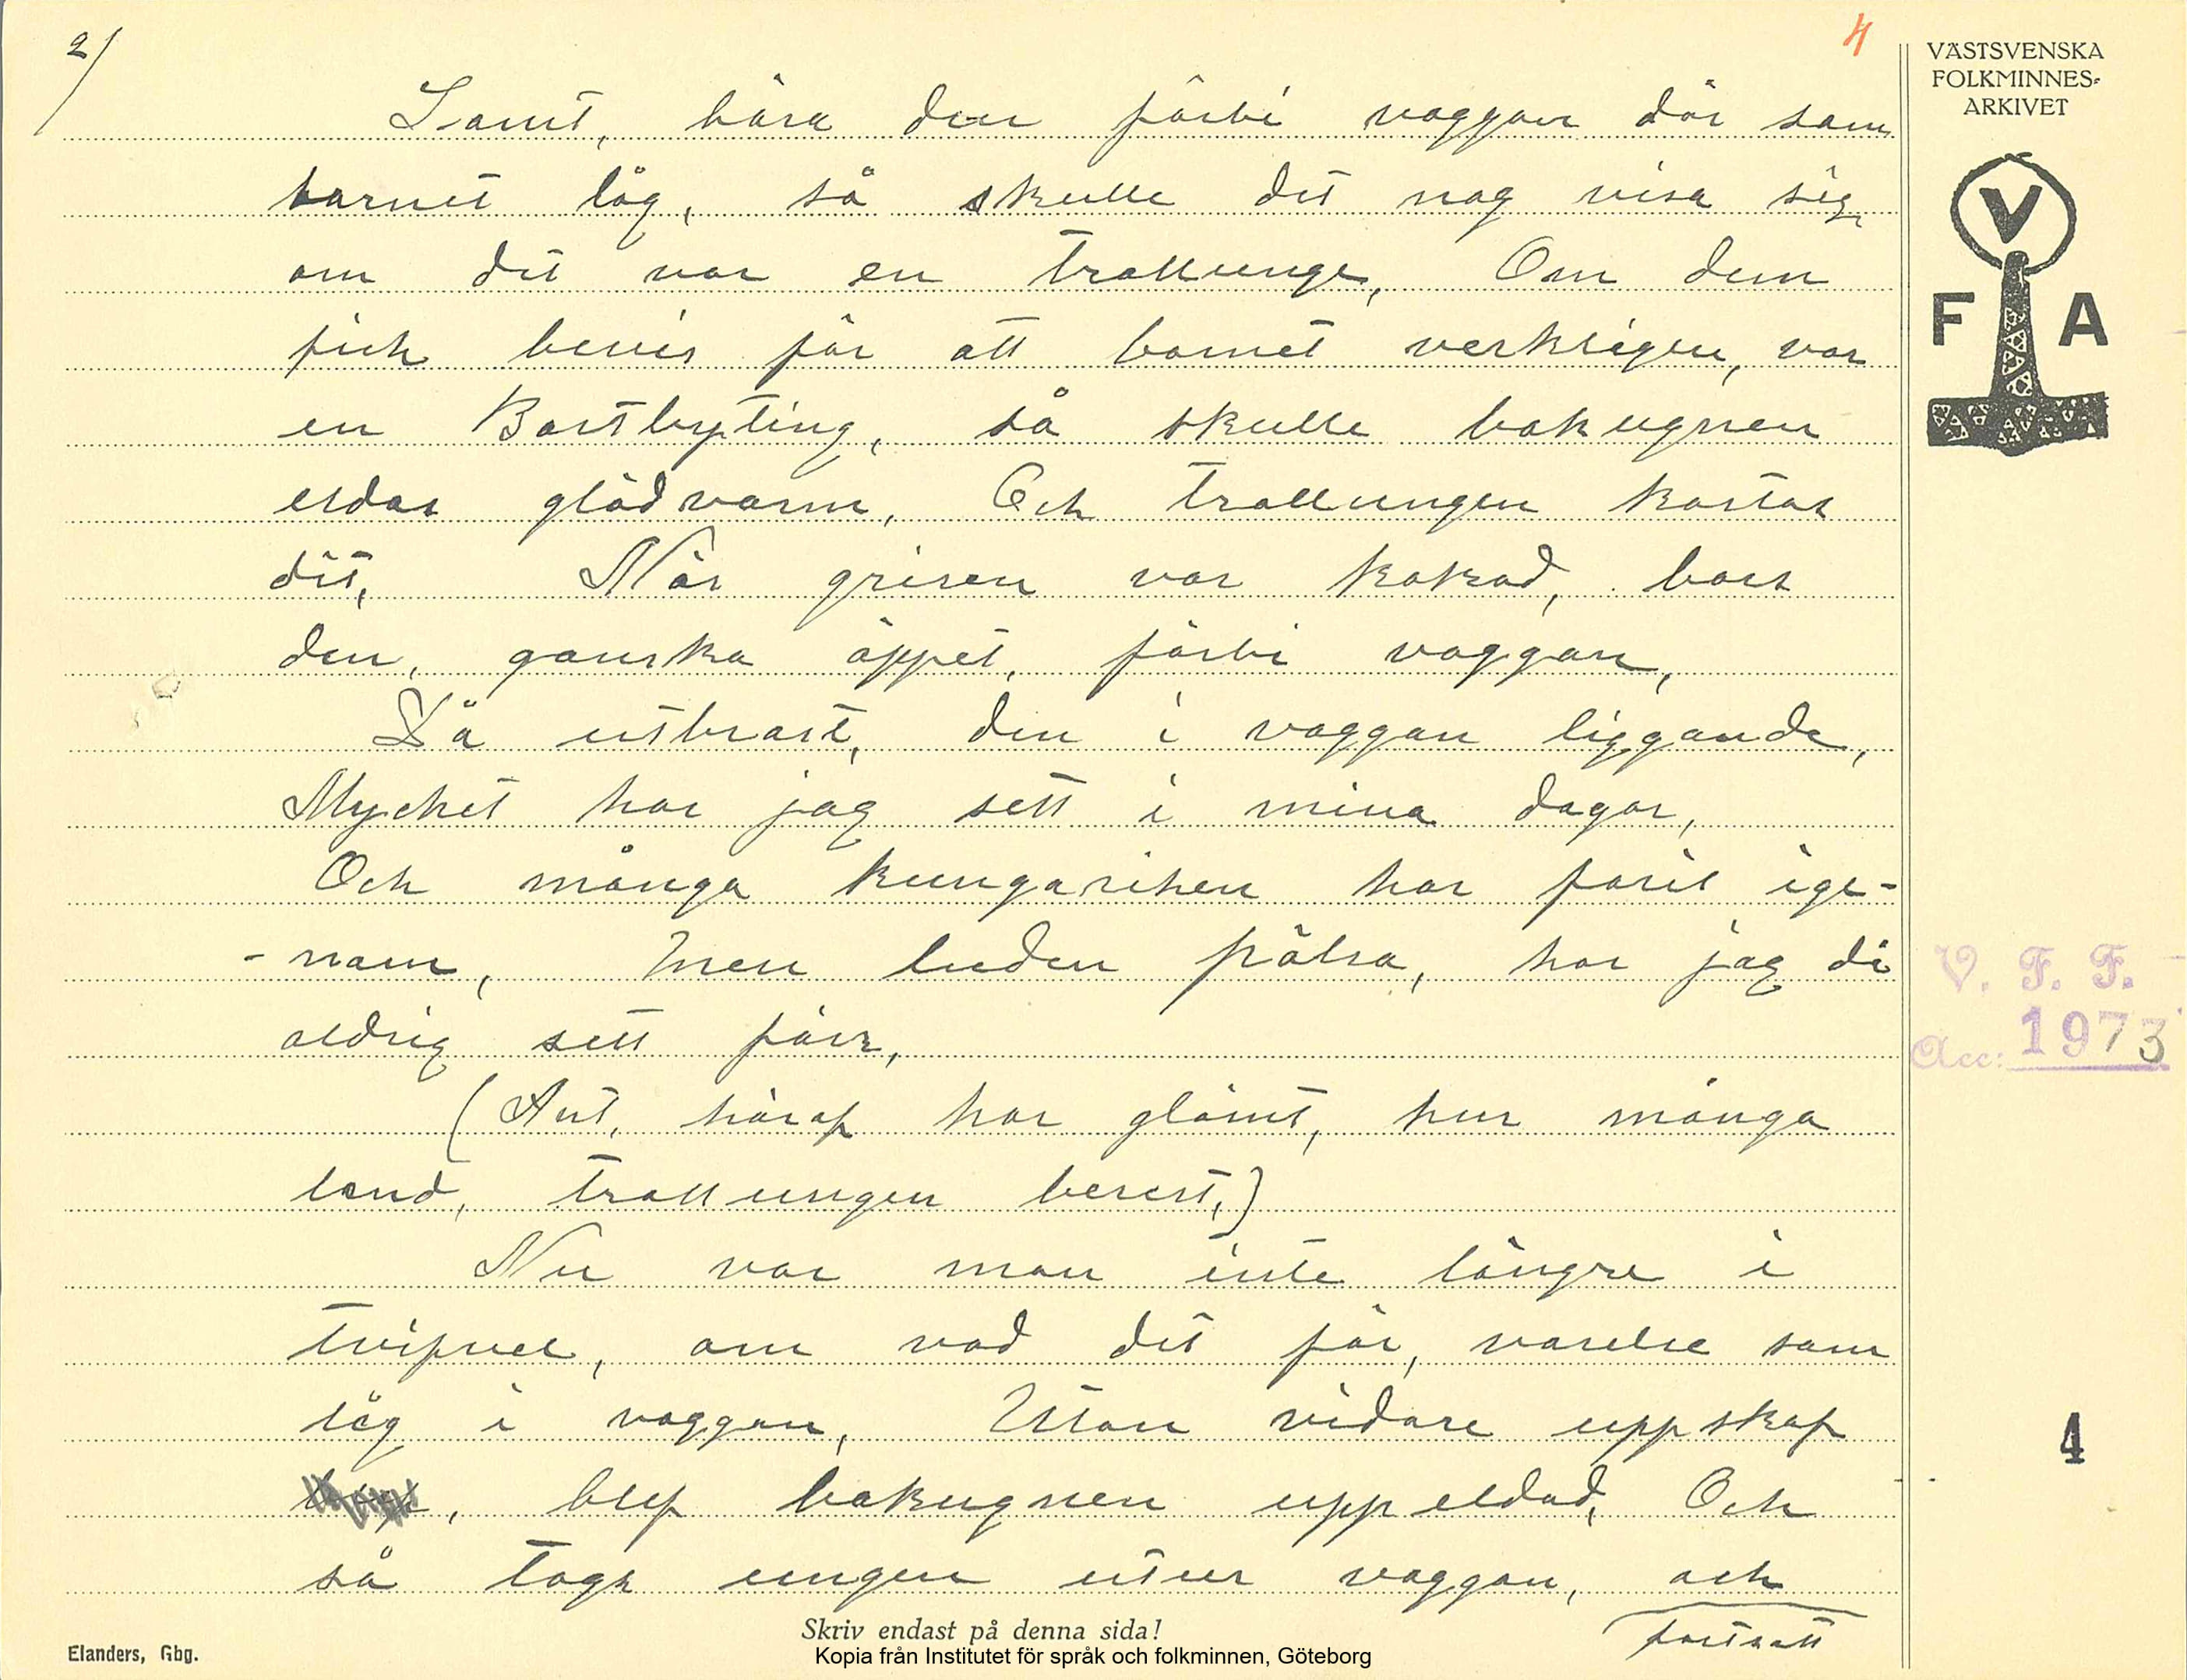 2/
4
VÄSTSVENSKA
FOLKMINNES-
ARKIVET
V
F A
Samt, bära den förbi vaggan där som
barnet låg, så skulle det nog visa sig,
om det var en trollunge, Om dem
fick bevis för att barnet verkligen, var
en Bortbyting, så skulle bakugnen
eldas glödvarm, Och trollungen kastas
dit, När grisen var kokad, bars
den, ganska öppet, förbi vaggan,
Då utbrast, den i vaggan liggande,
Mycket har jag sett i mina dagar,
Och många kungariken har farit ige-
-nom, Men luden pölsa, har jag di
aldrig sett förr,
(Ant, häraf har glömt, hur många
land, trollungen berest,)
Nu var man inte längre i
tvifvel, om vad det för, varelse som
låg i vaggan, Utan vidare uppskof
, blef bakugnen uppeldad, Och
så togs ungen utur vaggan, och
fortsatt
V. F. F.
Acc: 1973
4
Skriv endast på denna sida!
Elanders, Gbg.
Kopia från Institutet för språk och folkminnen, Göteborg